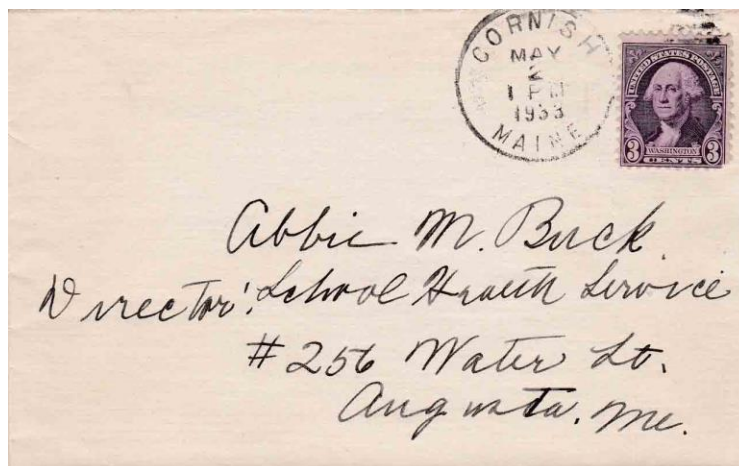 CORNISH
MAY
2
1 PM
1933
MAINE
UNITED STATES POSTAGE
3 WASHINGTON 3
CENTS
Abbie M. Buck
Director, School Health Service
#256 Water St.
Augusta. Me.